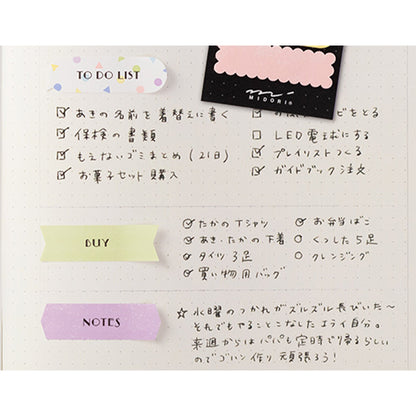 TO DO LIST
MIDORI®
☑ あきの名前を着替えに書く
☑ 保検の書類
☑ もえないゴミまとめ(21日)
☑ お菓子セット購入
ビをとる
☐ LED電球にする
☑ プレイリストつくる
☑ ガイドブック注文
BUY
たかのTシャツ
あき・たかの下着
タイツ3足
買い物用バッグ
お弁当ばこ
くつした5足
クレンジング
NOTES
☆ 水曜のつかれがズルズル長びいた〜
それでもやることこなしたエライ自分。
来週からはパパも定時で帰るらしい
のでゴハン作り頑張ろう!